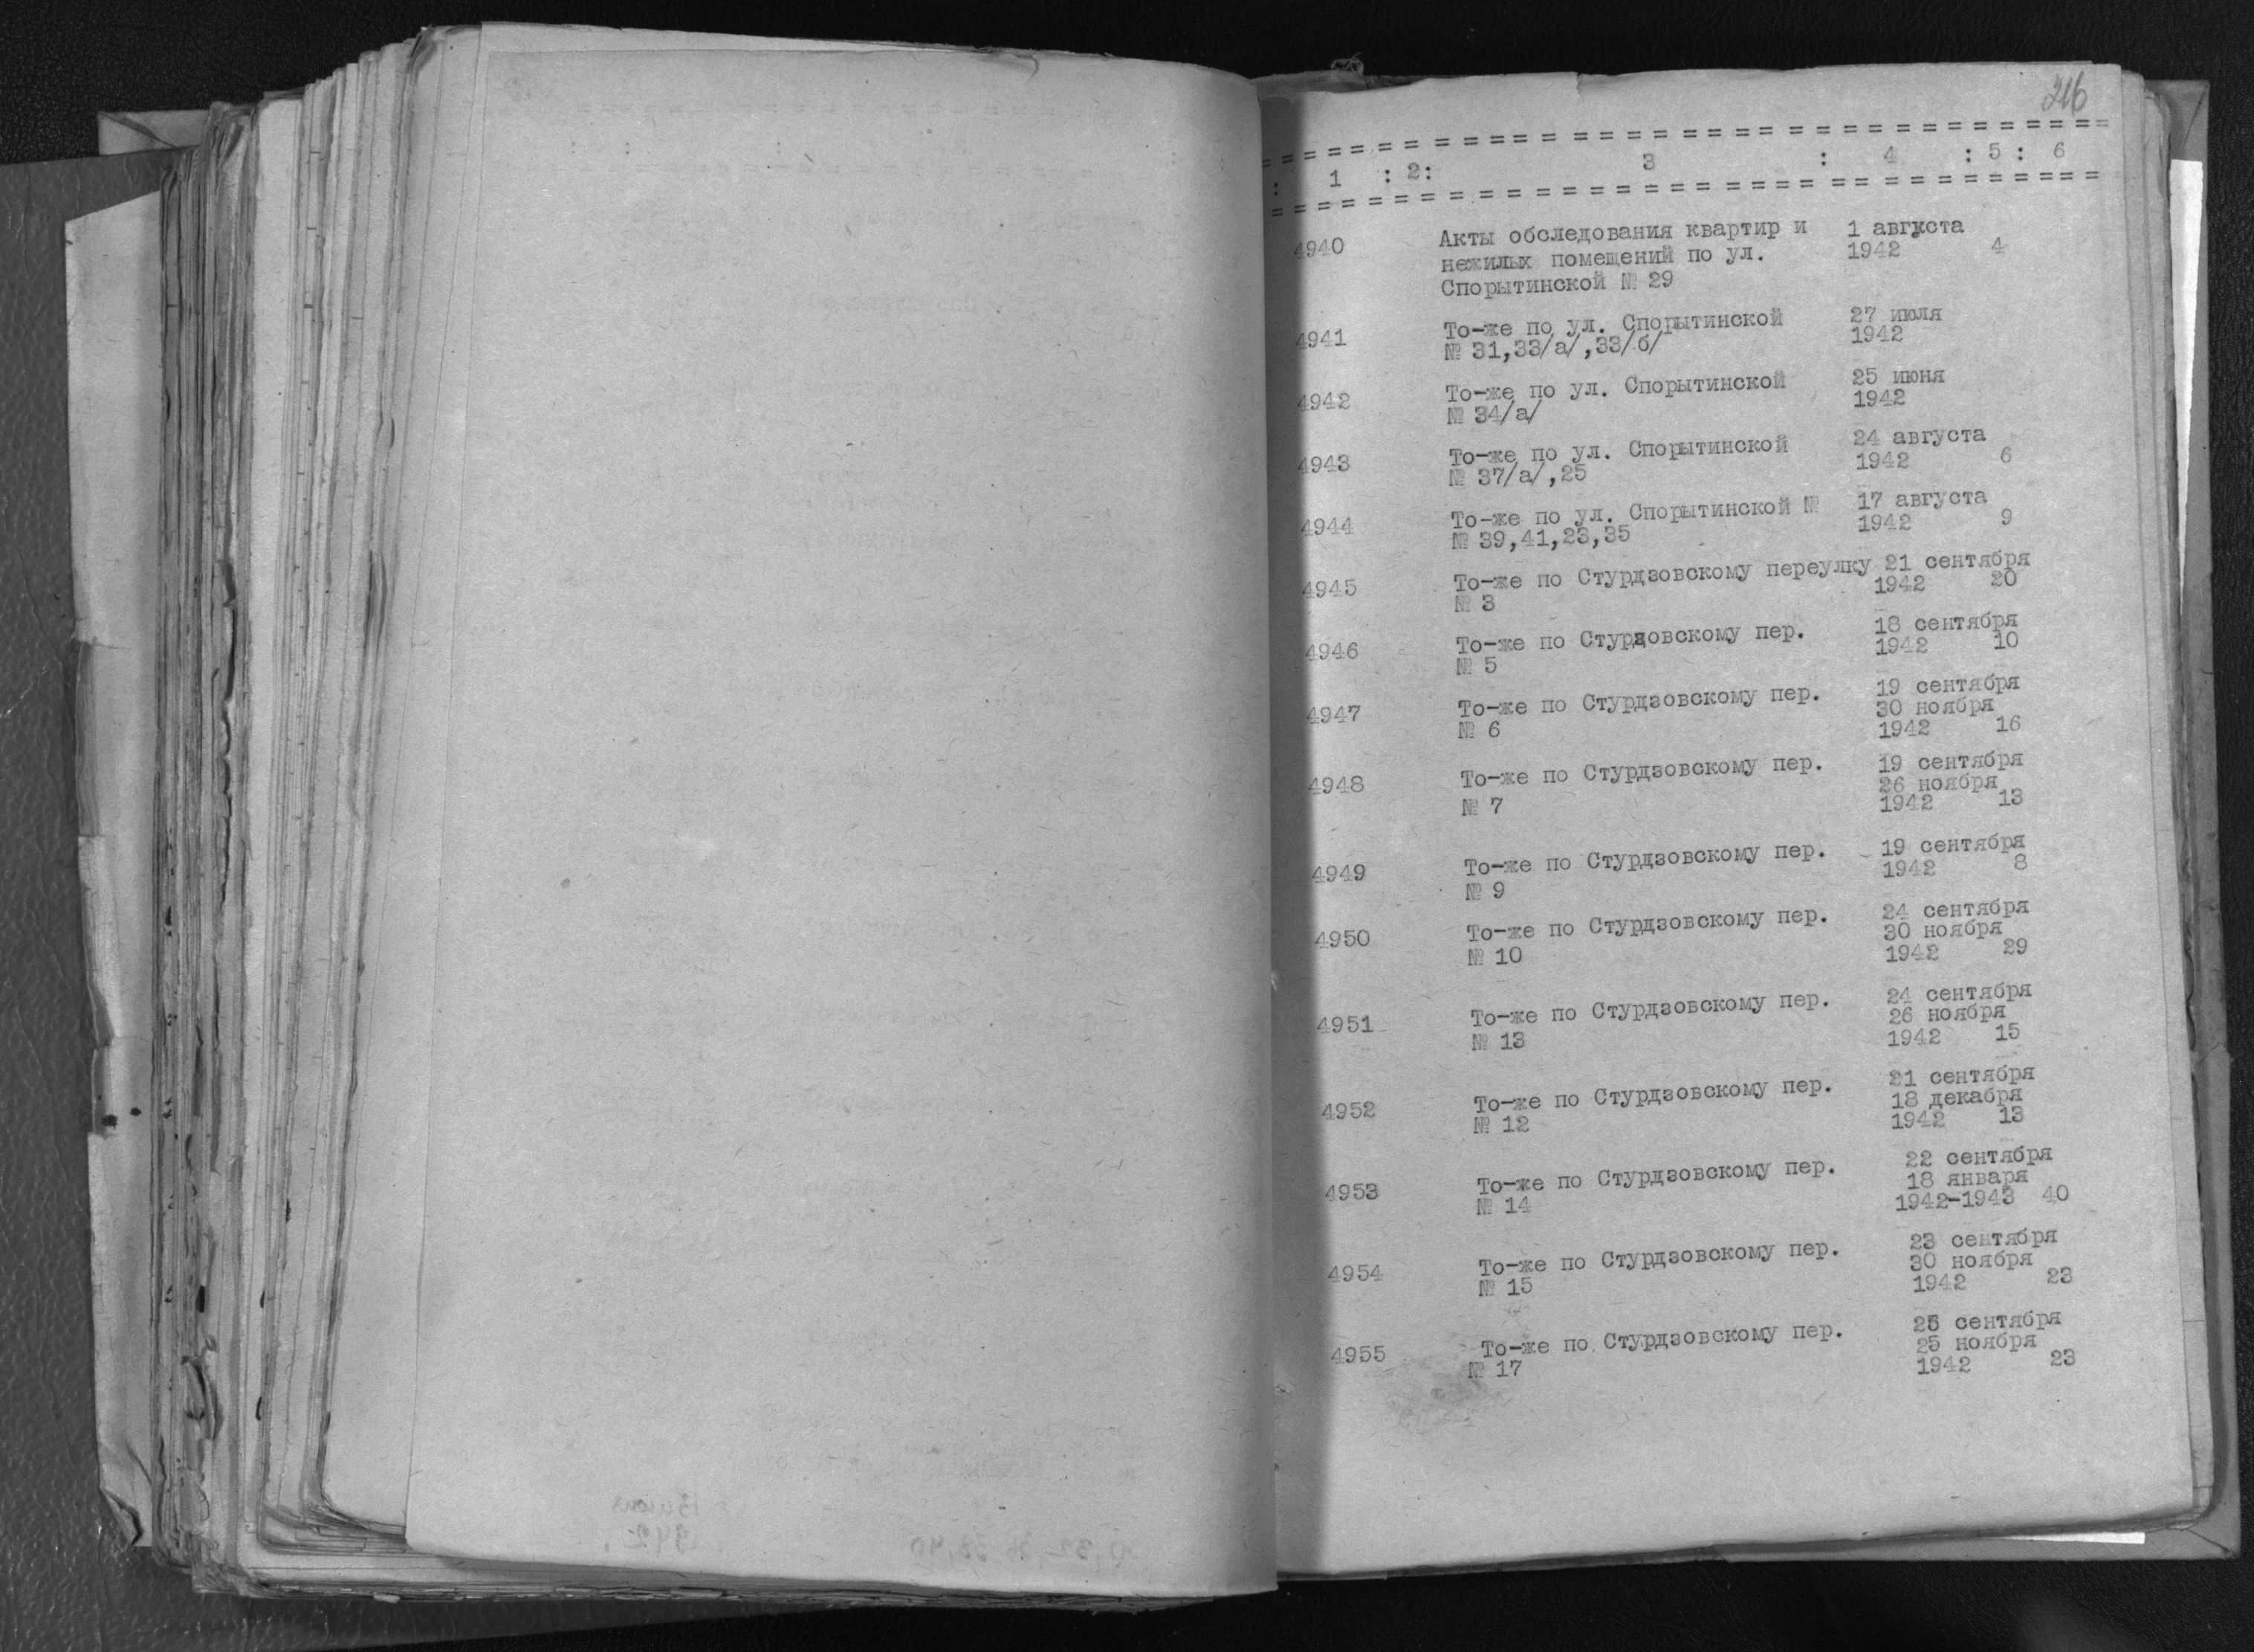 216
: 1 : 2: 3 : 4 : 5 : 6
4940 Акты обследования квартир и 1 августа
нежилых помещений по ул. 1942 4
Спорытинской № 29
4941 То-же по ул. Спорытинской 27 июля
№ 31,33/а/,33/б/ 1942
4942 То-же по ул. Спорытинской 25 июня
№ 34/а/ 1942
4943 То-же по ул. Спорытинской 24 августа
№ 37/а/,25 1942 6
4944 То-же по ул. Спорытинской № 17 августа
№ 39,41,23,35 1942 9
4945 То-же по Стурдзовскому переулку 21 сентября
№ 3 1942 20
4946 То-же по Стурдзовскому пер. 18 сентября
№ 5 1942 10
4947 То-же по Стурдзовскому пер. 19 сентября
№ 6 30 ноября
1942 16
4948 То-же по Стурдзовскому пер. 19 сентября
№ 7 26 ноября
1942 13
4949 То-же по Стурдзовскому пер. 19 сентября
№ 9 1942 8
4950 То-же по Стурдзовскому пер. 24 сентября
№ 10 30 ноября
1942 29
4951 То-же по Стурдзовскому пер. 24 сентября
№ 13 26 ноября
1942 15
4952 То-же по Стурдзовскому пер. 21 сентября
№ 12 18 декабря
1942 13
4953 То-же по Стурдзовскому пер. 22 сентября
№ 14 18 января
1942-1943 40
4954 То-же по Стурдзовскому пер. 23 сентября
№ 15 30 ноября
1942 23
4955 То-же по Стурдзовскому пер. 25 сентября
№ 17 25 ноября
1942 23